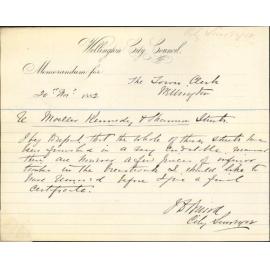 City Surveyor
Wellington City Council.
Memorandum for
The Town Clerk
Wellington
20th Nov. 1882
Re Moeller Kennedy & Streets
I beg Report that the whole of these streets have
been formed in a very Creditable manner
there are however a few pieces of inferior
timber in the I should like to
have removed before I give a final
Certificate.
City Surveyor